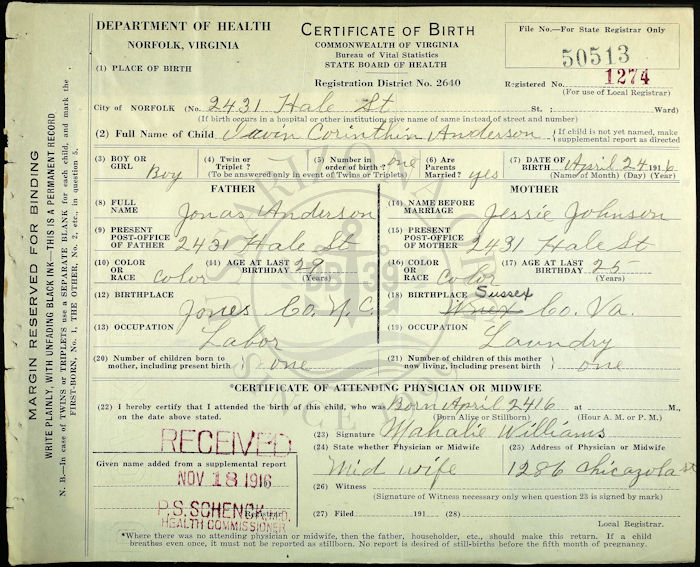 DEPARTMENT OF HEALTH
NORFOLK, VIRGINIA
CERTIFICATE OF BIRTH
COMMONWEALTH OF VIRGINIA
Bureau of Vital Statistics
STATE BOARD OF HEALTH
File No.—For State Registrar Only
50513
(1) PLACE OF BIRTH
Registration District No. 2640
Registered No. 1274
(For use of Local Registrar)
City of NORFOLK (No. 2431 Hale St St.; Ward)
(If birth occurs in a hospital or other institution, give name of same instead of street and number)
(2) Full Name of Child Corinthin Anderson
{If child is not yet named, make supplemental report as directed
(3) BOY OR GIRL Boy
(4) Twin or Triplet?
(5) Number in order of birth? one
(To be answered only in event of Twins or Triplets)
(6) Are Parents Married? yes
(7) DATE OF BIRTH April 24 1916
(Name of Month) (Day) (Year)
FATHER
MOTHER
(8) FULL NAME Jonas Anderson
(14) NAME BEFORE MARRIAGE Jessie Johnson
(9) PRESENT POST-OFFICE OF FATHER 2431 Hale St
(15) PRESENT POST-OFFICE OF MOTHER 2431 Hale St
(10) COLOR OR RACE Color
(11) AGE AT LAST BIRTHDAY 29 (Years)
(16) COLOR OR RACE Color
(17) AGE AT LAST BIRTHDAY 25 (Years)
(12) BIRTHPLACE Jones Co. N.C.
(18) BIRTHPLACE Sussex Co. Va.
(13) OCCUPATION Labor
(19) OCCUPATION Laundry
(20) Number of children born to mother, including present birth one
(21) Number of children of this mother now living, including present birth one
*CERTIFICATE OF ATTENDING PHYSICIAN OR MIDWIFE
(22) I hereby certify that I attended the birth of this child, who was Born April 24 16 at M.,
on the date above stated. (Born Alive or Stillborn) (Hour A. M. or P. M.)
(23) Signature Mahalie Williams
(24) State whether Physician or Midwife
(25) Address of Physician or Midwife
Mid wife
RECEIVED
Given name added from a supplemental report
NOV 18 1916
P.S. SCHENCK
Registrar
HEALTH COMMISSIONER
(26) Witness
(Signature of Witness necessary only when question 23 is signed by mark)
(27) Filed 191 (28)
Local Registrar.
*Where there was no attending physician or midwife, then the father, householder, etc., should make this return. If a child
breathes even once, it must not be reported as stillborn. No report is desired of still-births before the fifth month of pregnancy.
MARGIN RESERVED FOR BINDING
WRITE PLAINLY, WITH UNFADING BLACK INK—THIS IS A PERMANENT RECORD
N. B.—In case of TWINS or TRIPLETS use a SEPARATE BLANK for each child, and mark the
FIRST-BORN, No. 1, THE OTHER, No. 2, etc., in question 5.